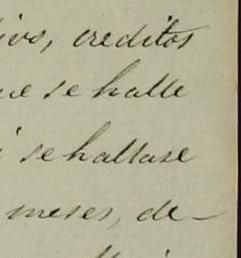 ivos, creditos
ue se halle
i se hallase
meses, de-